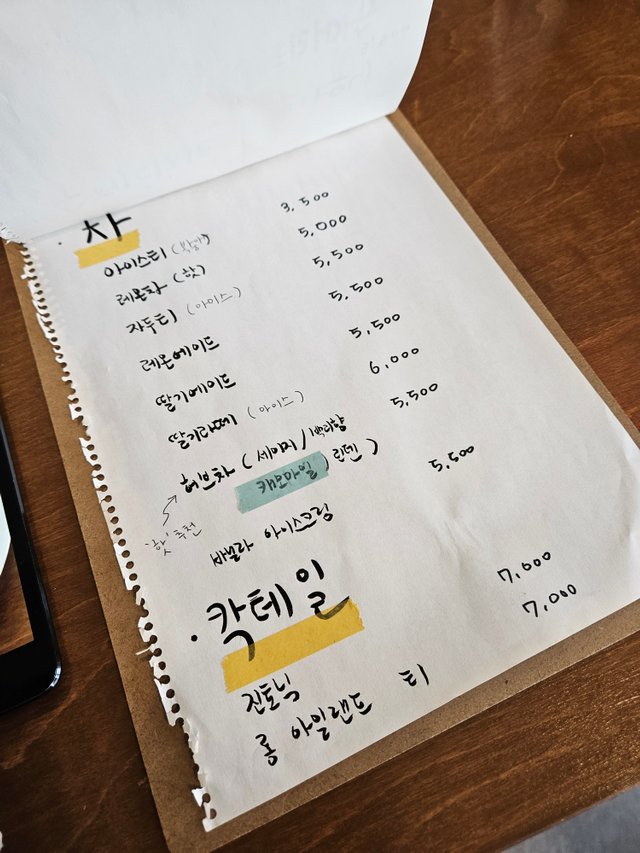 · 차
아이스티 (복숭아) 3,500
레몬차 (핫) 5,000
자두티 (아이스) 5,500
레몬에이드 5,500
딸기에이드 5,500
딸기라떼 (아이스) 6,000
허브차 (세이지/백리향 5,500
캐모마일/린덴)
'핫' 추천
바닐라 아이스크림 5,500
· 칵테일
진토닉 7,000
롱 아일랜드 티 7,000